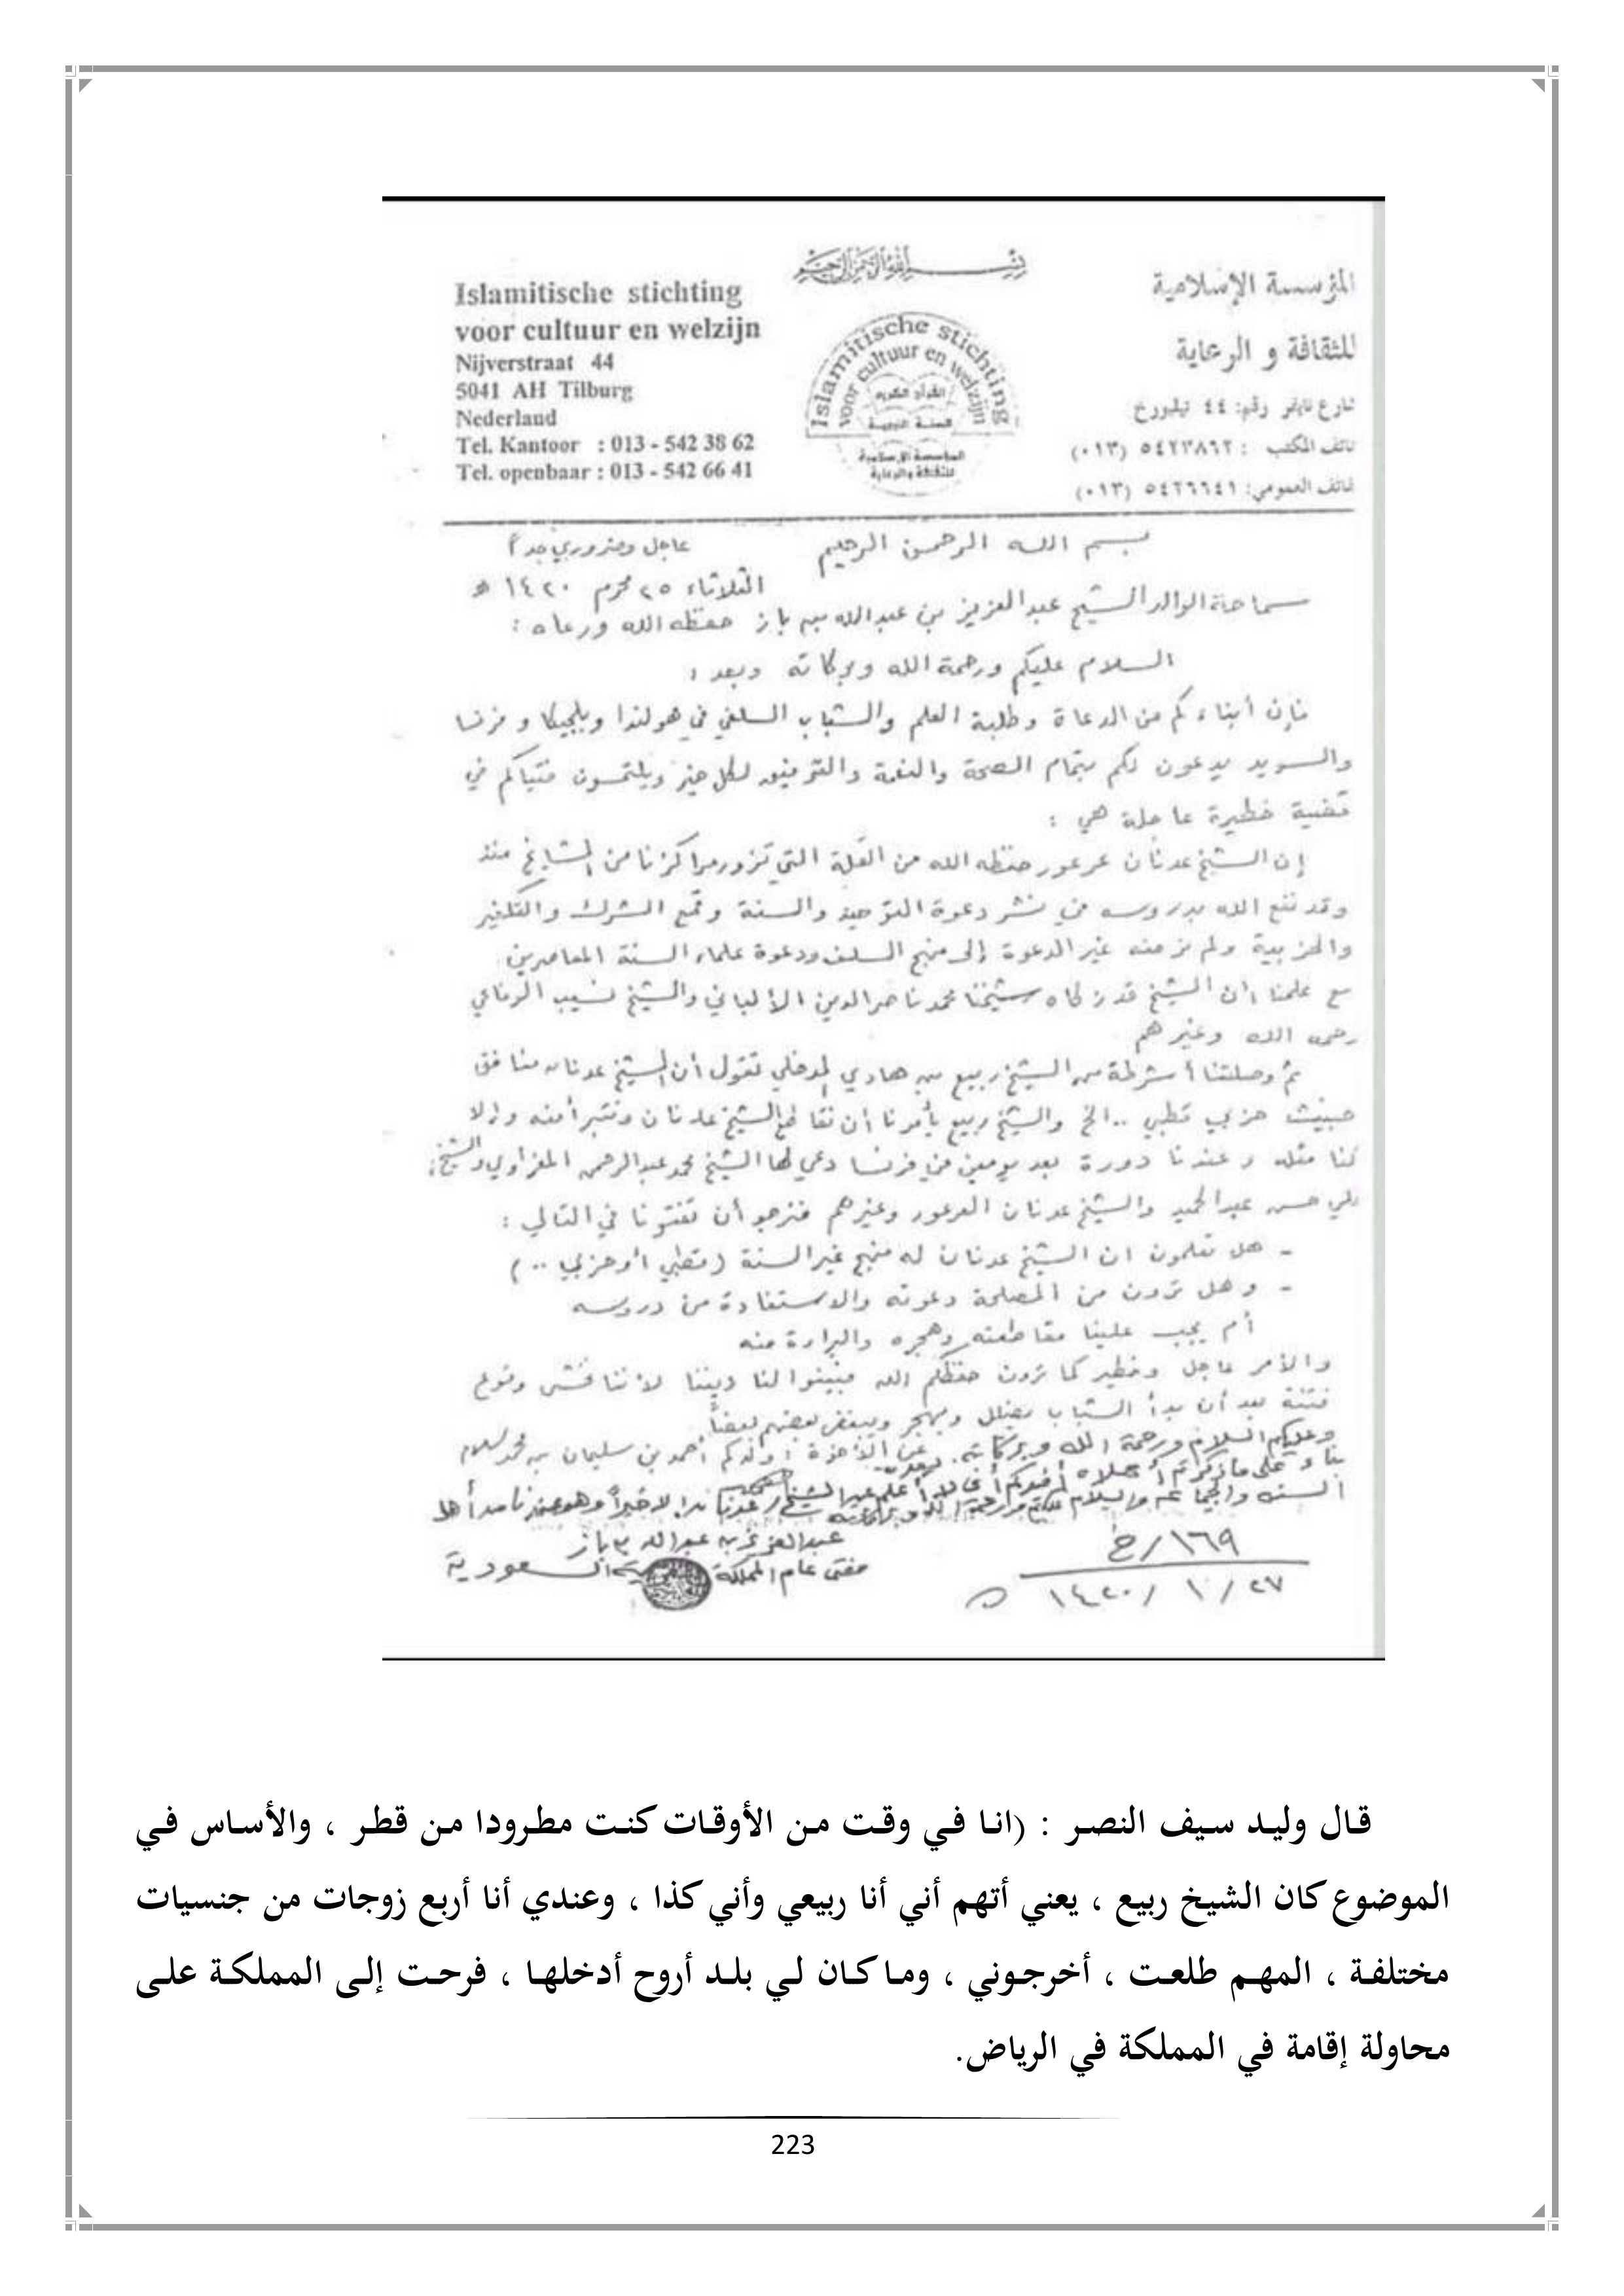 بسم الله الرحمن الرحيم
Islamitische stichting
voor cultuur en welzijn
Nijverstraat 44
5041 AH Tilburg
Nederland
Tel. Kantoor : 013 - 542 38 62
Tel. openbaar : 013 - 542 66 41
Islamitische stichting
voor cultuur en welzijn
القرآن الكريم
السنة النبوية
المؤسسة الإسلامية
للثقافة والرعاية
المؤسسة الإسلامية
للثقافة و الرعاية
شارع نايفر رقم: ٤٤ تيلبورخ
هاتف المكتب : ٥٤٢٣٨٦٢ (٠١٣)
هاتف العمومي: ٥٤٢٦٦٤١ (٠١٣)
بسم الله الرحمن الرحيم
عاجل وضروري جداً
الثلاثاء ٢٥ محرم ١٤٢٠ هـ
سماحة الوالد الشيخ عبد العزيز بن عبد الله بن باز حفظه الله ورعاه :
السلام عليكم ورحمة الله وبركاته وبعد :
فإن أبناءكم من الدعاة وطلبة العلم والشباب السلفي في هولندا وبلجيكا وفرنسا
والسويد يدعون لكم بتمام الصحة والنعمة والتوفيق لكل خير ويلتمسون فتياكم في
قضية خطيرة عاجلة هي :
إن الشيخ عدنان عرعور حفظه الله من القلة التي تزور مراكزنا من المشايخ منذ
وقد نفع الله بدروسه في نشر دعوة التوحيد والسنة وقمع الشرك والتكفير
والحزبية ولم نر منه غير الدعوة إلى منهج السلف ودعوة علماء السنة المعاصرين
مع علمنا أن الشيخ قد زكاه شيخنا محمد ناصر الدين الألباني والشيخ نسيب الرفاعي
رحمه الله وغيرهم
ثم وصلتنا أشرطة من الشيخ ربيع بن هادي المدخلي تقول أن الشيخ عدنان منافق
خبيث حزبي قطبي .. الخ والشيخ ربيع يأمرنا أن نقاطع الشيخ عدنان ونتبرأ منه وإلا
كنا مثله وعندنا دورة بعد يومين في فرنسا دعي لها الشيخ محمد عبد الرحمن المغراوي والشيخ
علي حسن عبد الحميد والشيخ عدنان العرعور وغيرهم فنرجو أن تفتونا في التالي :
- هل تعلمون ان الشيخ عدنان له منهج غير السنة (قطبي أو حزبي ..)
- وهل ترون من المصلحة دعوته والاستفادة من دروسه
أم يجب علينا مقاطعته وهجره والبراءة منه
والأمر عاجل وخطير كما ترون حفظكم الله فبينوا لنا ديننا لأننا نخشى وقوع
فتنة بعد أن بدأ الشباب يضلل ويهجر ويبغض بعضهم بعضاً
عن الأخوة : ولدكم أحمد بن سليمان بن محمد سلام
وعليكم السلام ورحمة الله وبركاته. وبعد
بناء على ما ذكرتم أعلاه أفيدكم أني لا أعلم عن الشيخ عدنان إلا خيراً وهو عندنا من أهل
السنة والجماعة والسلام عليكم ورحمة الله وبركاته
عبد العزيز بن عبد الله بن باز
مفتي عام المملكة العربية السعودية
١٦٩/خ
٢٧ / ١ / ١٤٢٠ هـ
قال وليد سيف النصر : (انا في وقت من الأوقات كنت مطرودا من قطر ، والأساس في
الموضوع كان الشيخ ربيع ، يعني أتهم أني أنا ربيعي وأني كذا ، وعندي أنا أربع زوجات من جنسيات
مختلفة ، المهم طلعت ، أخرجوني ، وما كان لي بلد أروح أدخلها ، فرحت إلى المملكة على
محاولة إقامة في المملكة في الرياض.
223